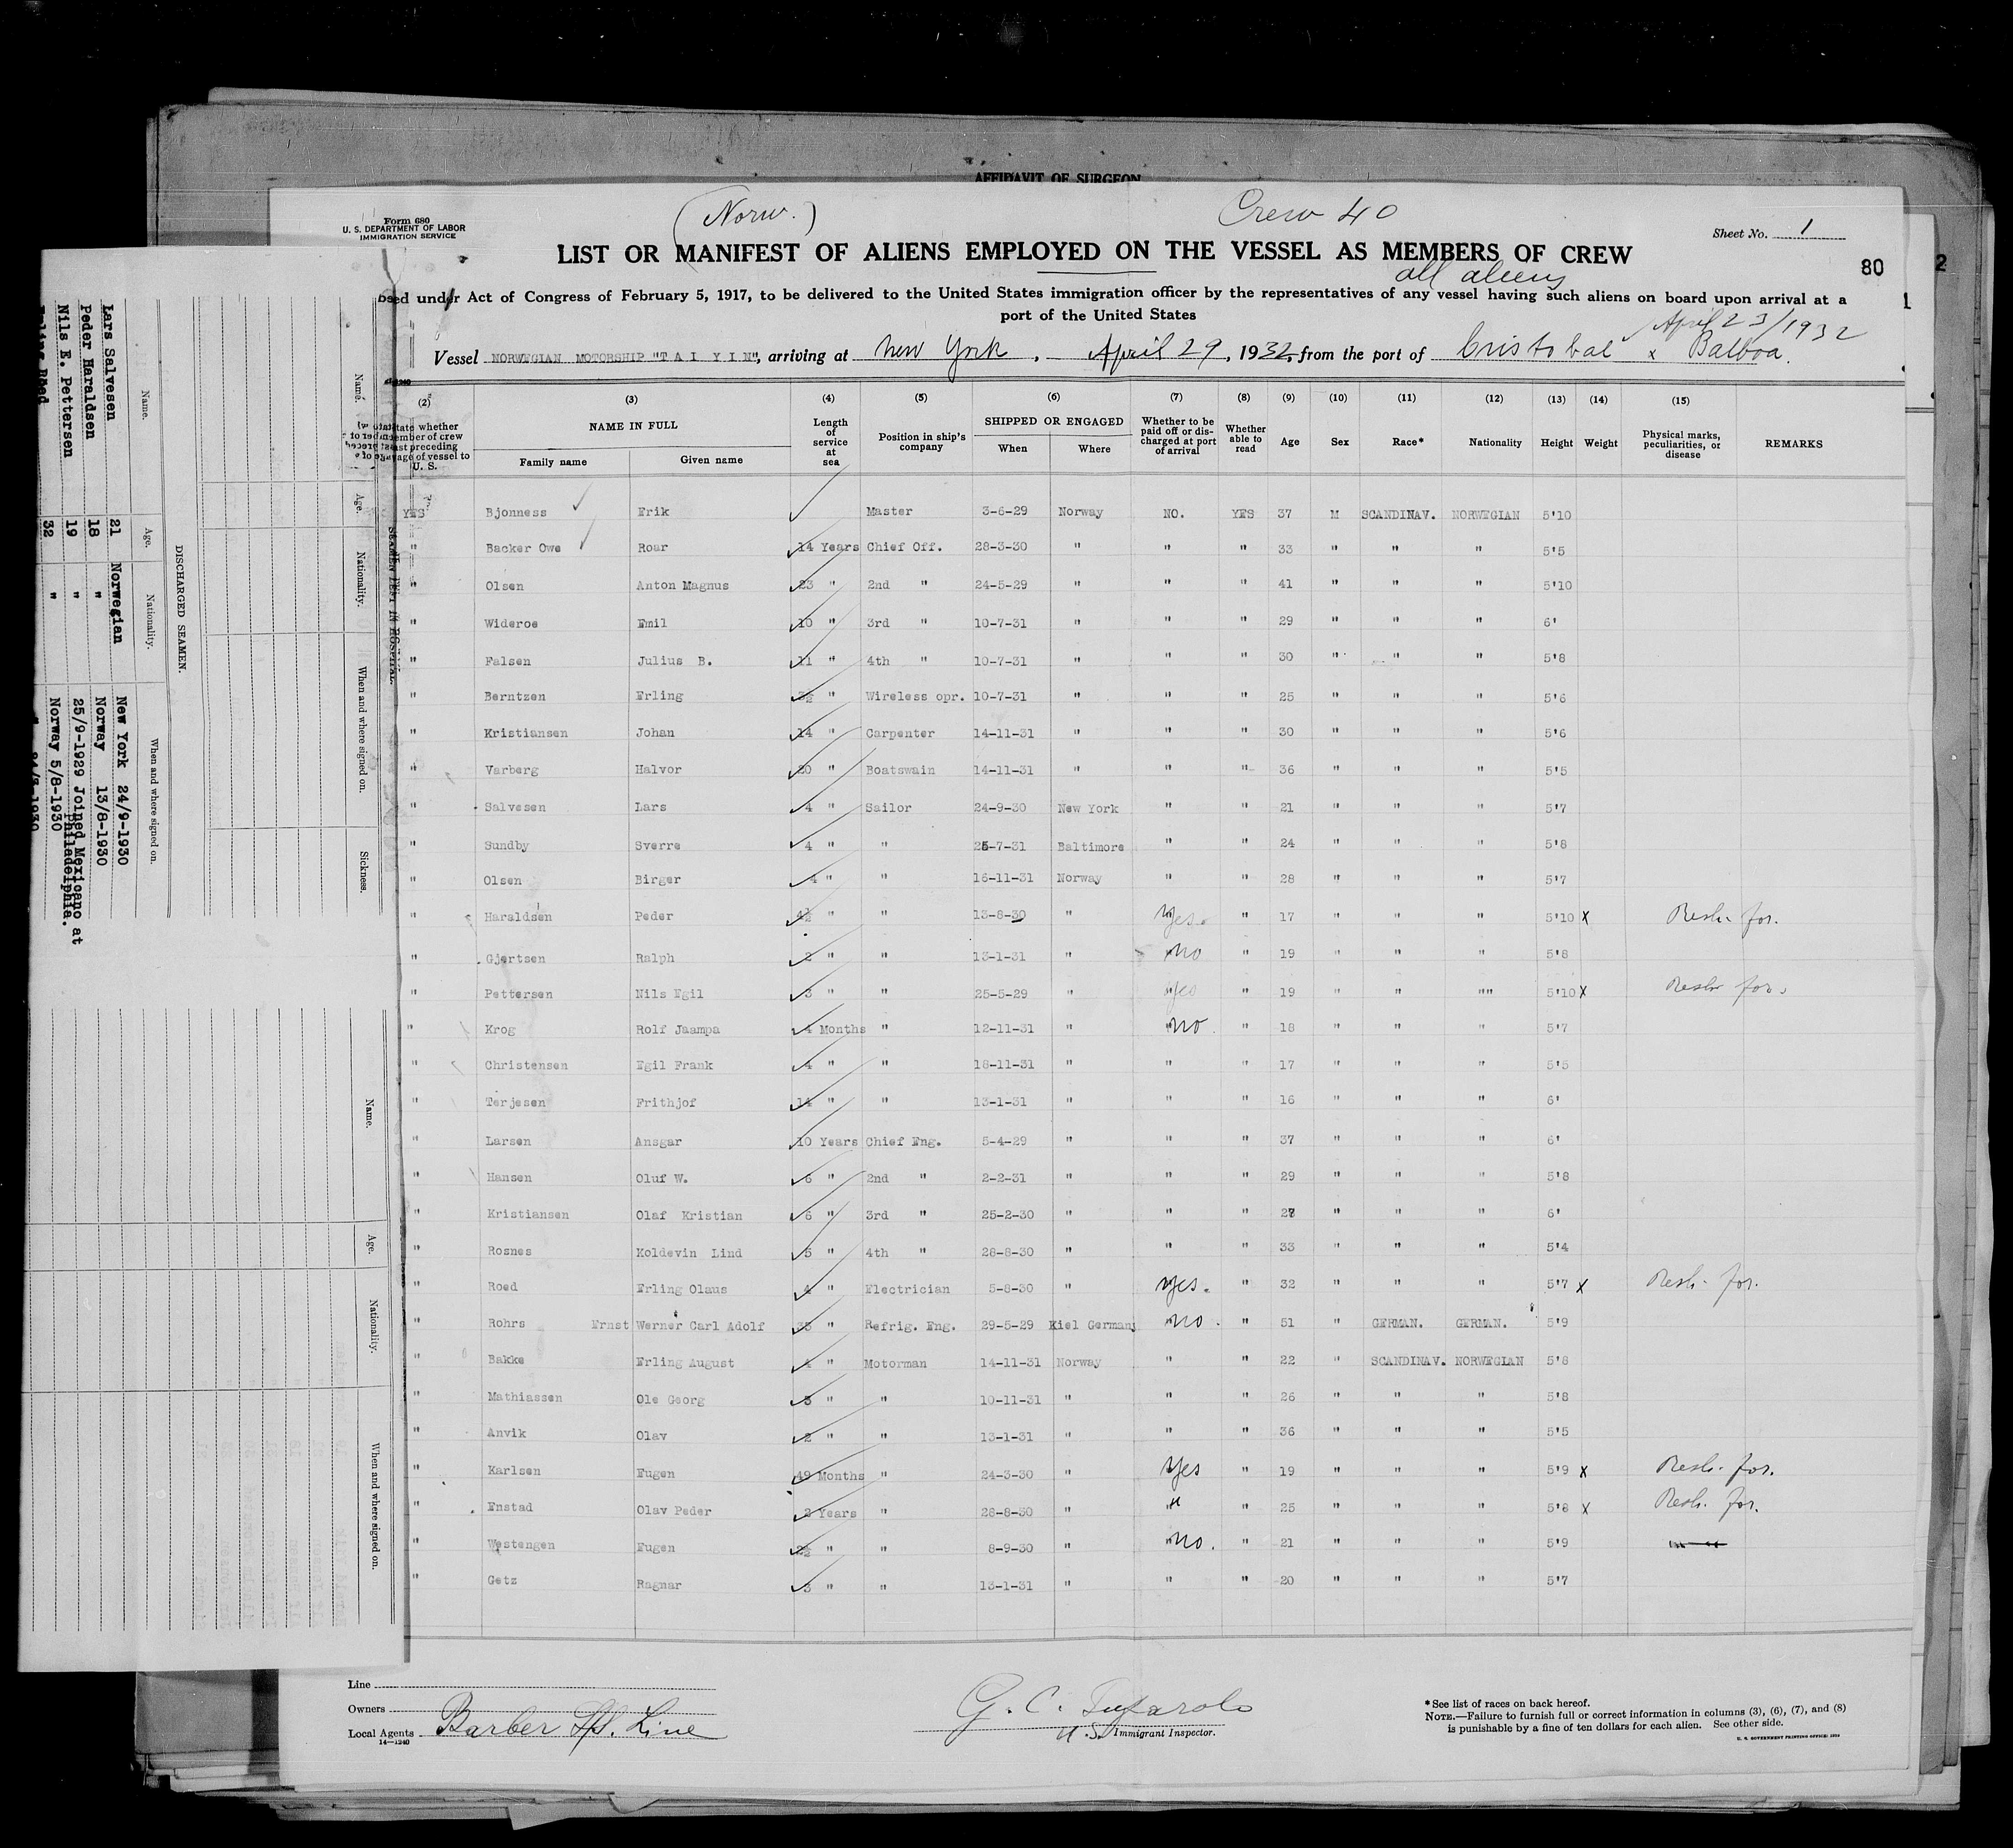 AFFIDAVIT OF SURGEON
(Norw.) Crew 40
Form 680
U. S. DEPARTMENT OF LABOR
IMMIGRATION SERVICE
Sheet No. 1
LIST OR MANIFEST OF ALIENS EMPLOYED ON THE VESSEL AS MEMBERS OF CREW
80
all aliens
under Act of Congress of February 5, 1917, to be delivered to the United States immigration officer by the representatives of any vessel having such aliens on board upon arrival at a
port of the United States
April 23/1932
Vessel NORWEGIAN MOTORSHIP "T A I Y I N", arriving at New York, April 29, 1932, from the port of Cristobal x Balboa.
(2) (3) (4) (5) (6) (7) (8) (9) (10) (11) (12) (13) (14) (15)
NAME IN FULL Family name Given name Length of service at sea Position in ship's company SHIPPED OR ENGAGED When Where Whether to be paid off or discharged at port of arrival Whether able to read Age Sex Race* Nationality Height Weight Physical marks, peculiarities, or disease REMARKS
YES Bjonness Erik Master 3-6-29 Norway NO. YES 37 M SCANDINAV. NORWEGIAN 5'10
" Backer Owe Roar 14 Years Chief Off. 28-3-30 " " " 33 " " " 5'5
" Olsen Anton Magnus 23 " 2nd " 24-5-29 " " " 41 " " " 5'10
" Wideroe Emil 10 " 3rd " 10-7-31 " " " 29 " " " 6'
" Falsen Julius B. 11 " 4th " 10-7-31 " " " 30 " " " 5'8
" Berntzen Erling " Wireless opr. 10-7-31 " " " 25 " " " 5'6
" Kristiansen Johan 14 " Carpenter 14-11-31 " " " 30 " " " 5'6
" Varberg Halvor 20 " Boatswain 14-11-31 " " " 36 " " " 5'5
" Salvesen Lars 4 " Sailor 24-9-30 New York " " 21 " " " 5'7
" Sundby Sverre 4 " " 25-7-31 Baltimore " " 24 " " " 5'8
" Olsen Birger 4 " " 16-11-31 Norway " " 28 " " " 5'7
" Haraldsen Peder 4½ " " 13-8-30 " Yes. " 17 " " " 5'10 x Resh. for.
" Gjertsen Ralph 2 " " 13-1-31 " no " 19 " " " 5'8
" Pettersen Nils Egil 3 " " 25-5-29 " yes " 19 " " "" 5'10 x Resh. for.
" Krog Rolf Jaampa 4 Months " 12-11-31 " no. " 18 " " " 5'7
" Christensen Egil Frank 4 " " 18-11-31 " " " 17 " " " 5'5
" Terjesen Frithjof 14 " " 13-1-31 " " " 16 " " " 6'
" Larsen Ansgar 10 Years Chief Eng. 5-4-29 " " " 37 " " " 6'
" Hansen Oluf W. 6 " 2nd " 2-2-31 " " " 29 " " " 5'8
" Kristiansen Olaf Kristian 6 " 3rd " 25-2-30 " " " " " " 6'
" Rosnes Koldevin Lind 5 " 4th " 28-8-30 " " " 33 " " " 5'4
" Roed Erling Olaus 4 " Electrician 5-8-30 " yes. " 32 " " " 5'7 x Resh. for.
" Rohrs Ernst Werner Carl Adolf 35 " Refrig. Eng. 29-5-29 Kiel Germany no. " 51 " GERMAN. GERMAN. 5'9
" Bakke Erling August 4 " Motorman 14-11-31 Norway " " 22 " SCANDINAV. NORWEGIAN 5'8
" Mathiassen Ole Georg 3 " " 10-11-31 " " " 26 " " " 5'8
" Anvik Olav 2 " " 13-1-31 " " " 36 " " " 5'5
" Karlsen Eugen 49 Months " 24-3-30 " Yes " 19 " " " 5'9 x Resh. for.
" Enstad Olav Peder 2 Years " 28-8-30 " " " 25 " " " 5'8 x Resh. for.
" Westengen Eugen 2½ " " 8-9-30 " no. " 21 " " " 5'9
" Getz Ragnar 3 " " 13-1-31 " " " 20 " " " 5'7
Line
Owners
Local Agents Barber SS. Line
14-1240
G. C.
U.S. Immigrant Inspector.
*See list of races on back hereof.
NOTE.—Failure to furnish full or correct information in columns (3), (6), (7), and (8)
is punishable by a fine of ten dollars for each alien. See other side.
U. S. GOVERNMENT PRINTING OFFICE:
SEAMEN LEFT IN HOSPITAL.
Name. Age. Nationality. When and where signed on. Sickness.
DISCHARGED SEAMEN.
Name. Age. Nationality. When and where signed on.
Lars Salvesen 21 Norwegian New York 24/9-1930
Peder Haraldsen 18 " Norway 13/8-1930
Nils E. Pettersen 19 " 25/9-1929 Joined Mexicano at Philadelphia.
32 " Norway 5/8-1930
Name. Age. Nationality. When and where signed on.